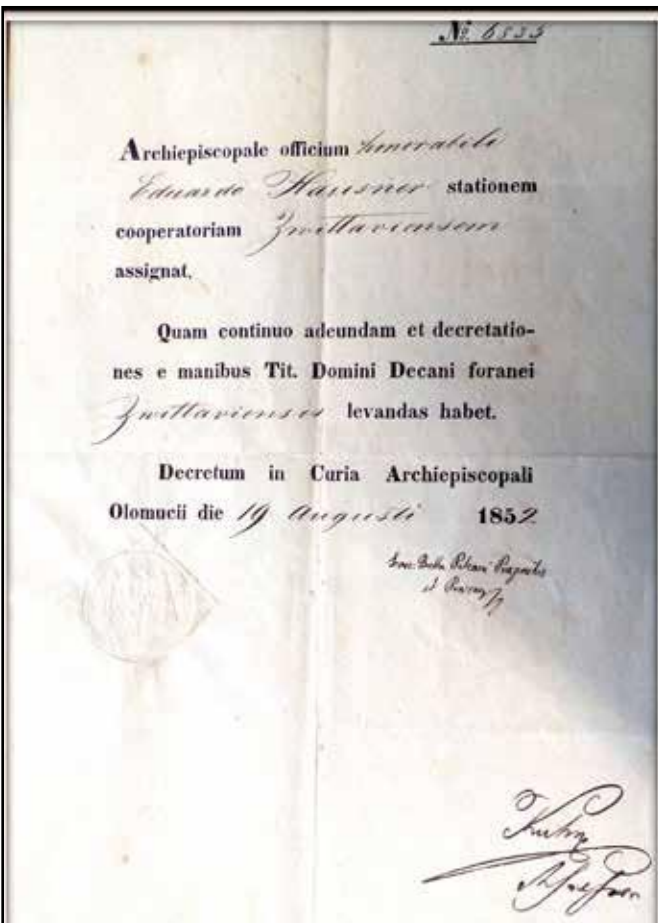 No. 6535
Archiepiscopale officium honorabili
Eduardo Hausner stationem
cooperatoriam Zwittaviensem
assignat.
Quam continuo adeundam et decretatio-
nes e manibus Tit. Domini Decani foranei
Zwittaviensis levandas habet.
Decretum in Curia Archiepiscopali
Olomucii die 19 Augusti 1852